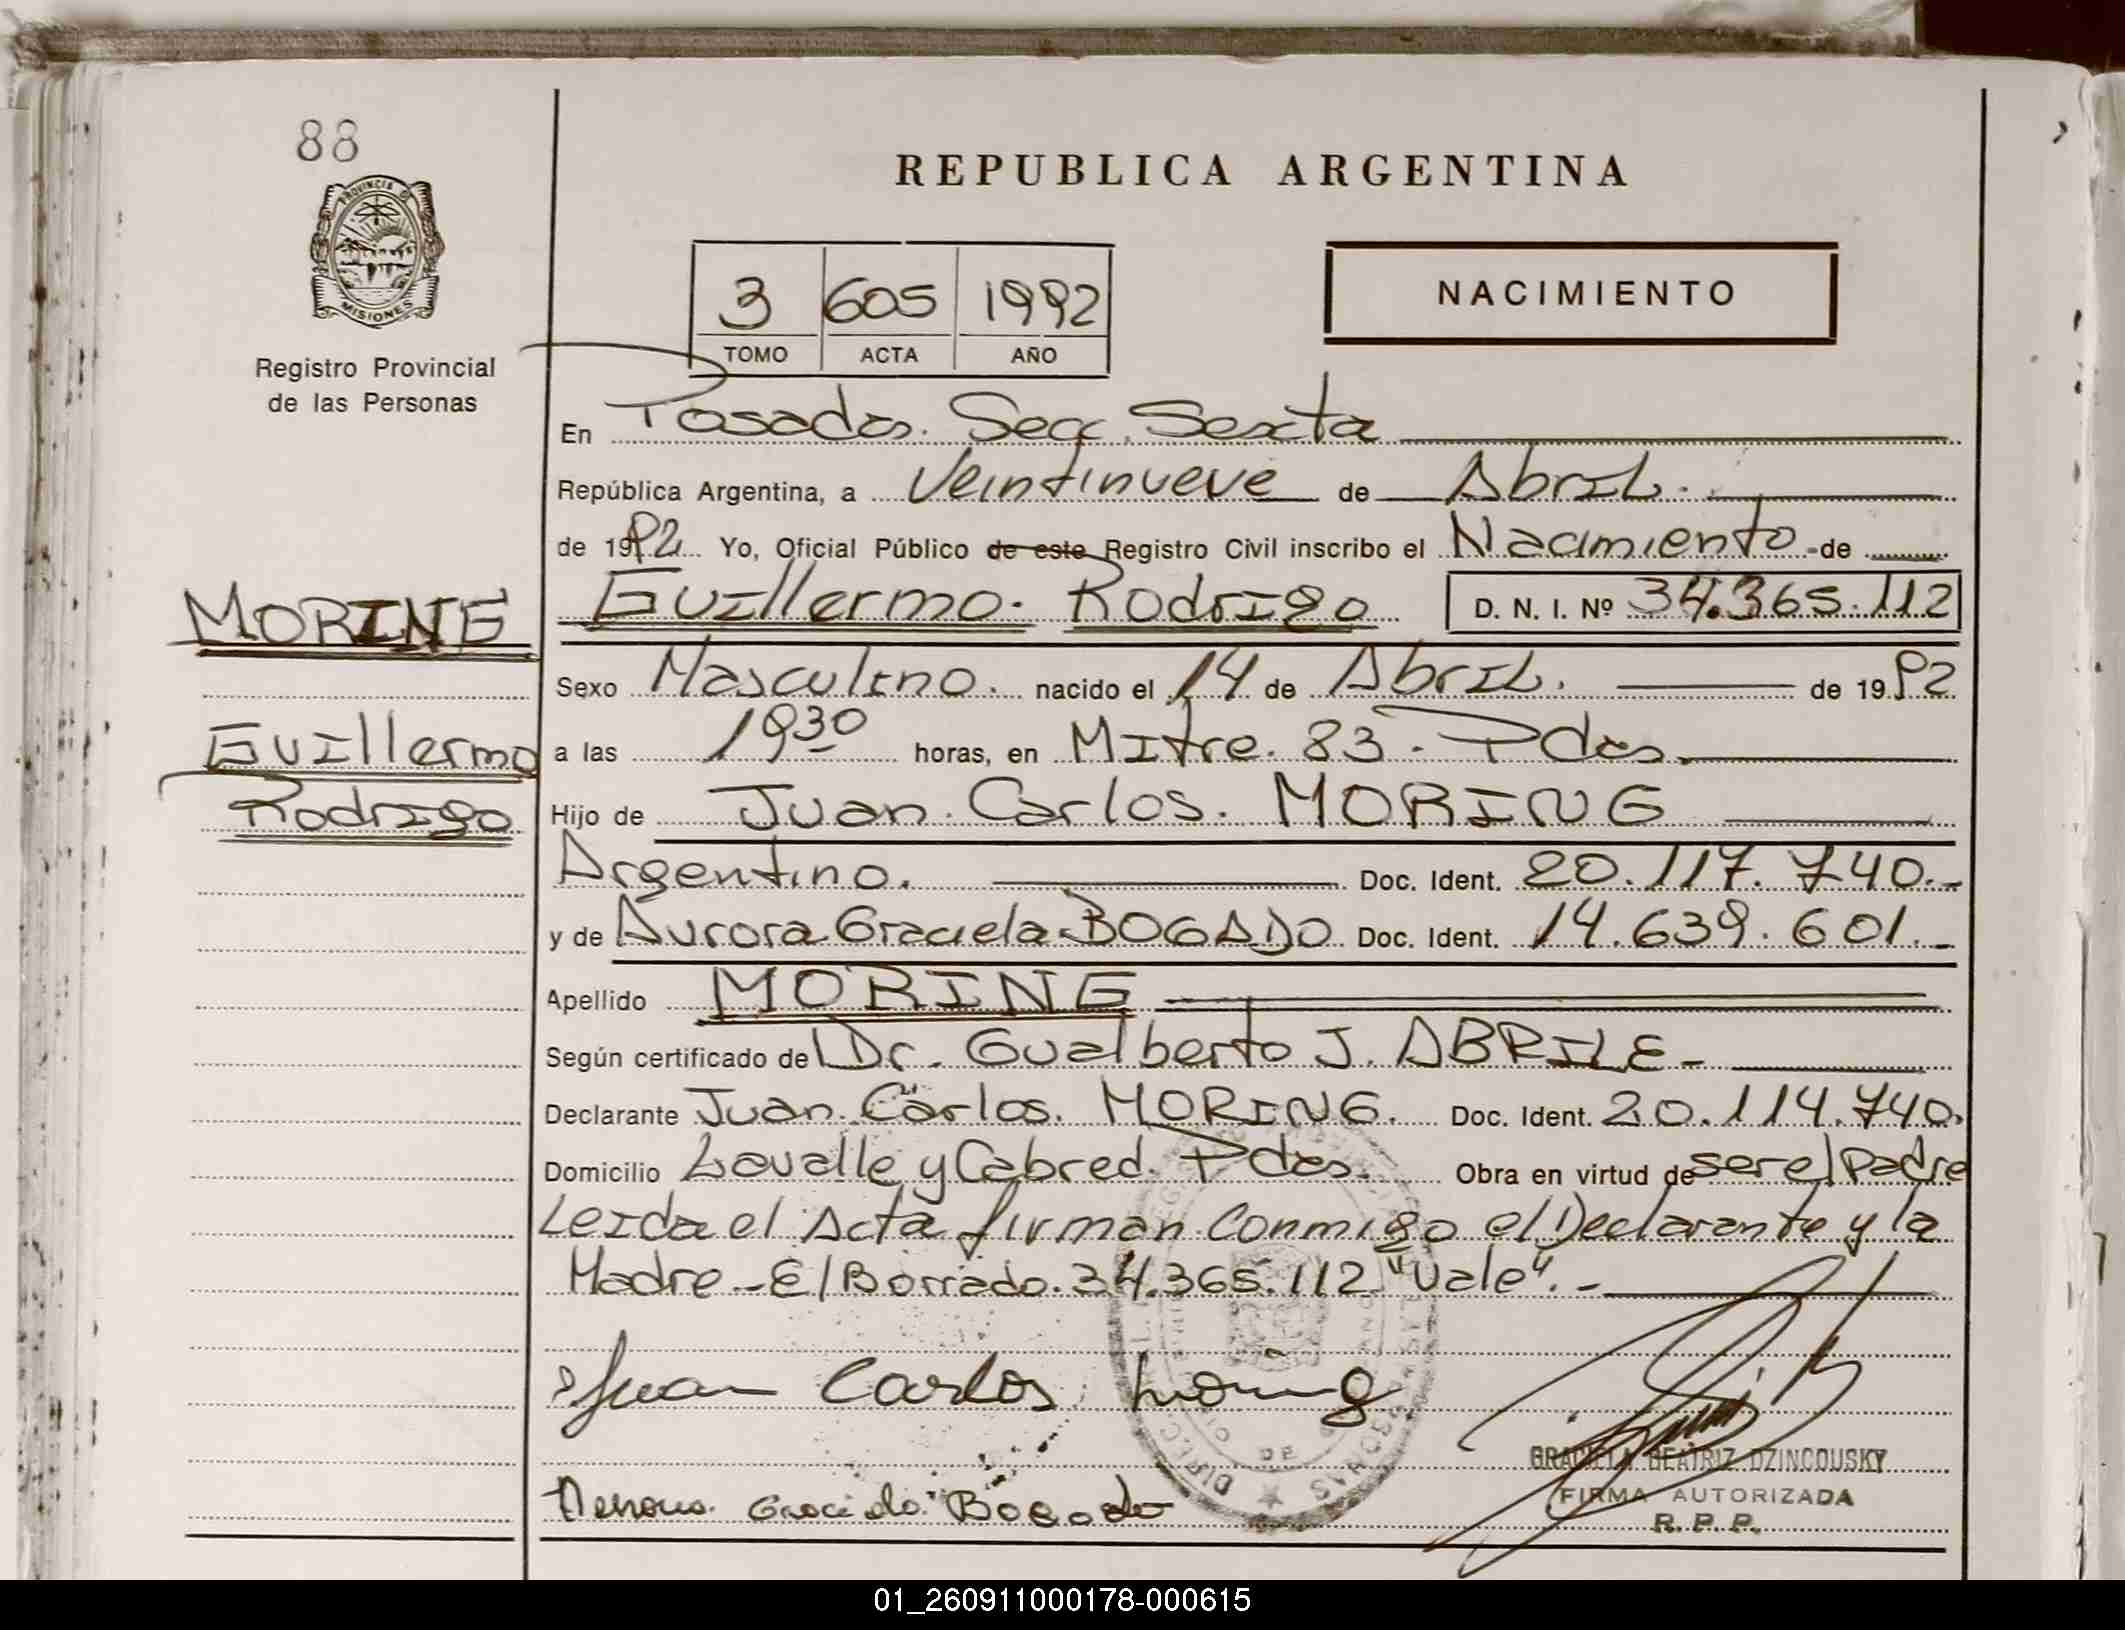 88
PROVINCIA DE
MISIONES
Registro Provincial
de las Personas
REPUBLICA ARGENTINA
3 605 1992
TOMO ACTA AÑO
NACIMIENTO
En Posadas. Secc. Sexta
República Argentina, a Veintinueve de Abril.
de 1992 Yo, Oficial Público de este Registro Civil inscribo el Nacimiento de
MORING
Guillermo. Rodrigo D. N. I. Nº 34.365.112
Sexo Masculino. nacido el 14 de Abril. de 1992
Guillermo
a las 19 30 horas, en Mitre. 83. Pdas.
Rodrigo
Hijo de Juan Carlos. MORING
Argentino. Doc. Ident. 20.117.740.-
y de Aurora Graciela BOGADO Doc. Ident. 14.639.601.-
Apellido MORING
Según certificado de Dr. Gualberto J. ABRILE-
Declarante Juan Carlos. MORING. Doc. Ident. 20.114.740.
Domicilio Lavalle y Cabred. Pdas. Obra en virtud de ser el Padre
Leida el Acta firman Conmigo el Declarante y la
Madre-El Borrado. 34.365.112 "Vale".-
Juan Carlos Moring
GRACIELA BEATRIZ DZINCOUSKY
FIRMA AUTORIZADA
R. P. P.
Graciela Bogado
01_260911000178-000615